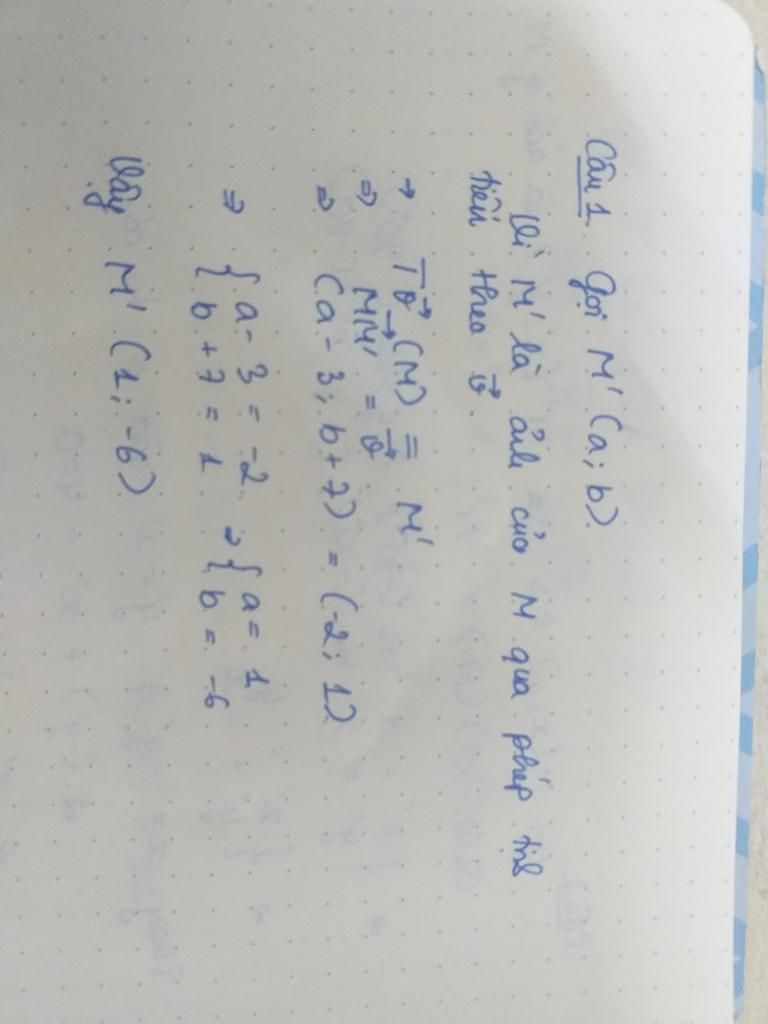 Câu 1 Gọi M'(a; b)
Vì M' là ảnh của M qua phép tịnh
tiến theo v⃗.
→ Tv⃗ (M) = M'
⇒ MM'⃗ = v⃗
⇒ (a - 3; b + 7) = (-2; 1)
⇒ { a - 3 = -2 → { a = 1
b + 7 = 1 b = -6
Vậy M' (1; -6)